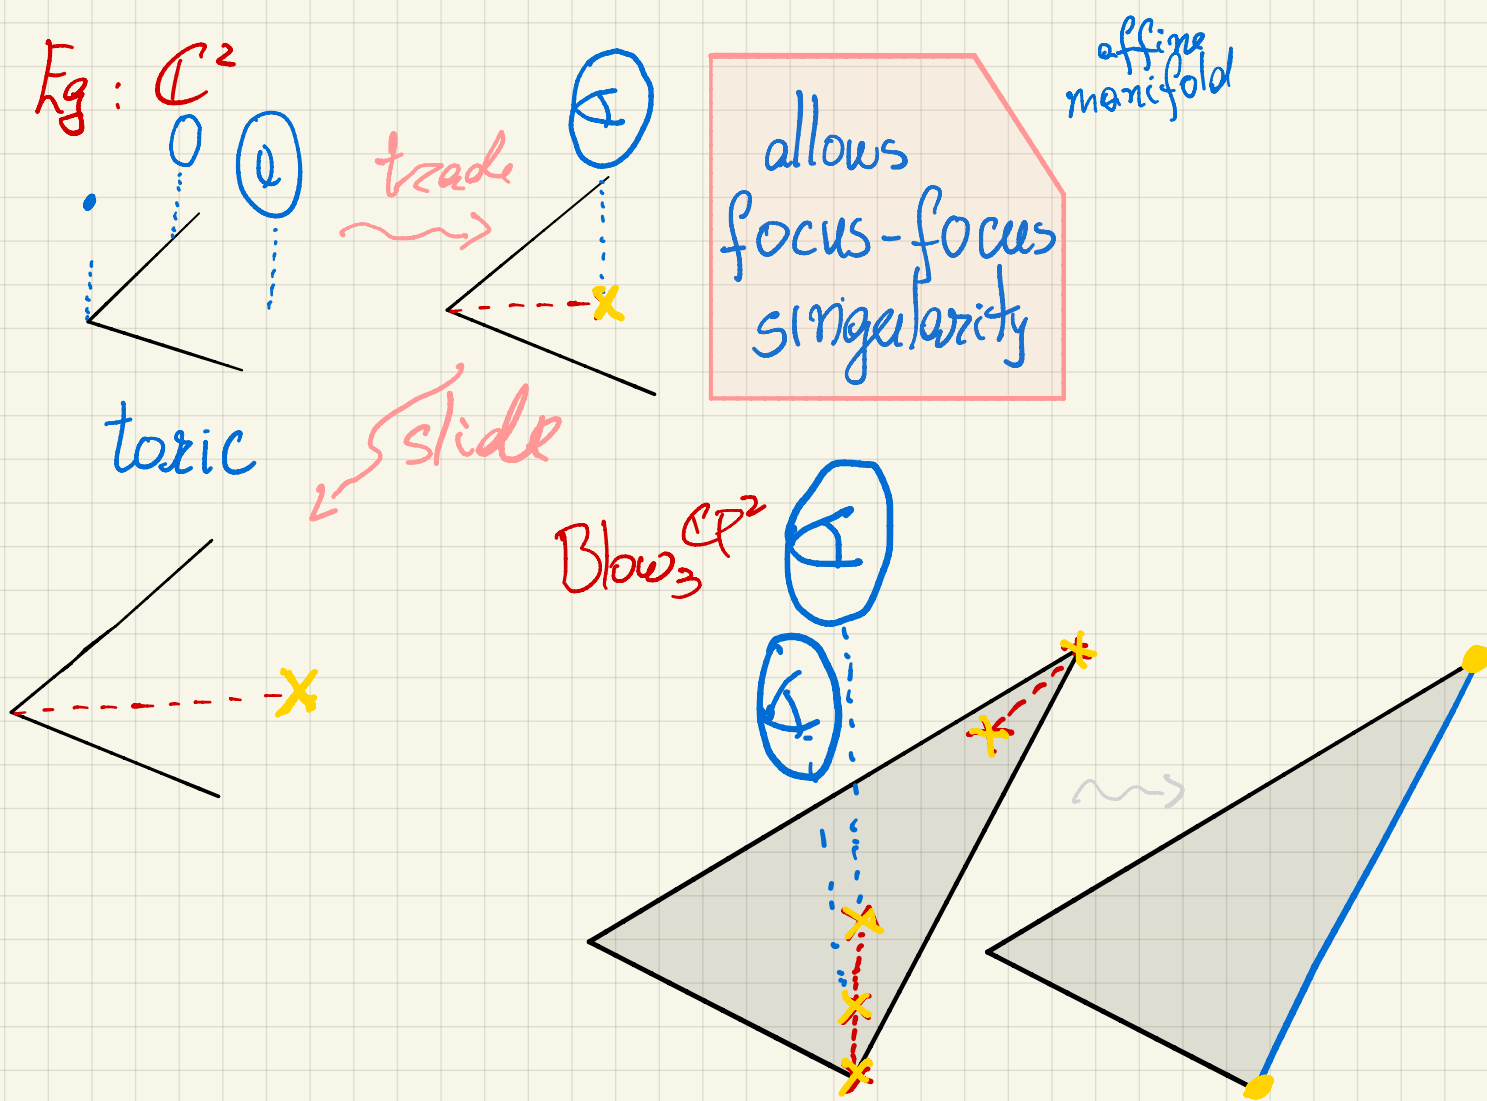 Eg: ℂ²
trade
allows
focus-focus
singularity
affine
manifold
toric
slide
Blow₃ ℂP²